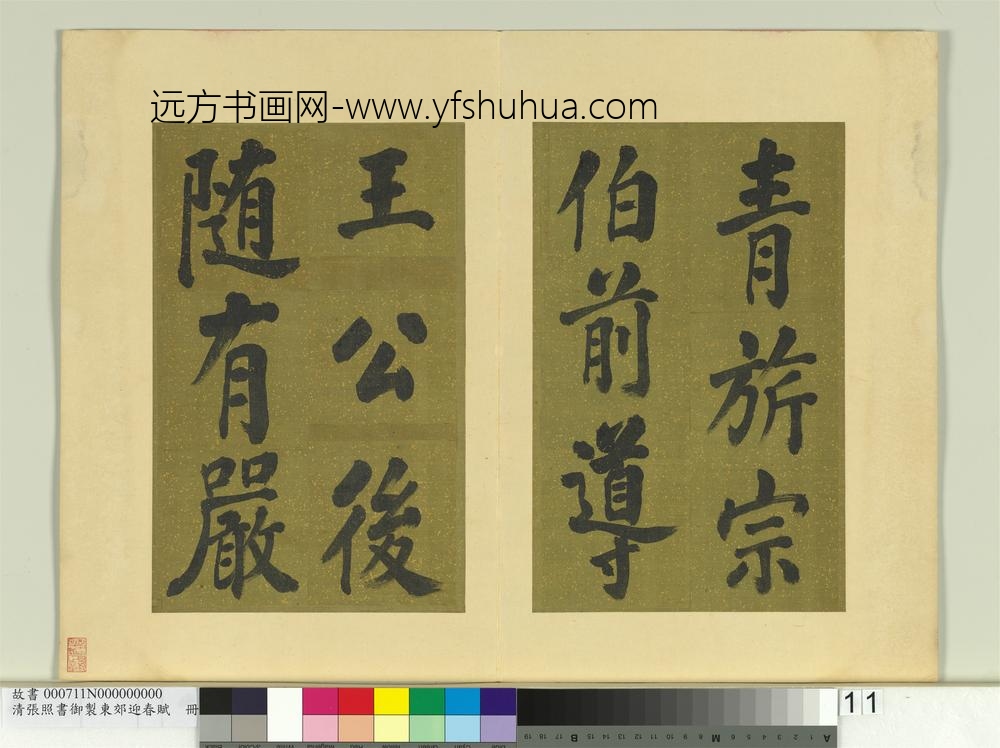 远方书画网-www.yfshuhua.com
青旂宗
伯前導
王公後
随有嚴
故書 000711N000000000
清張照書御製東郊迎春賦 冊
11